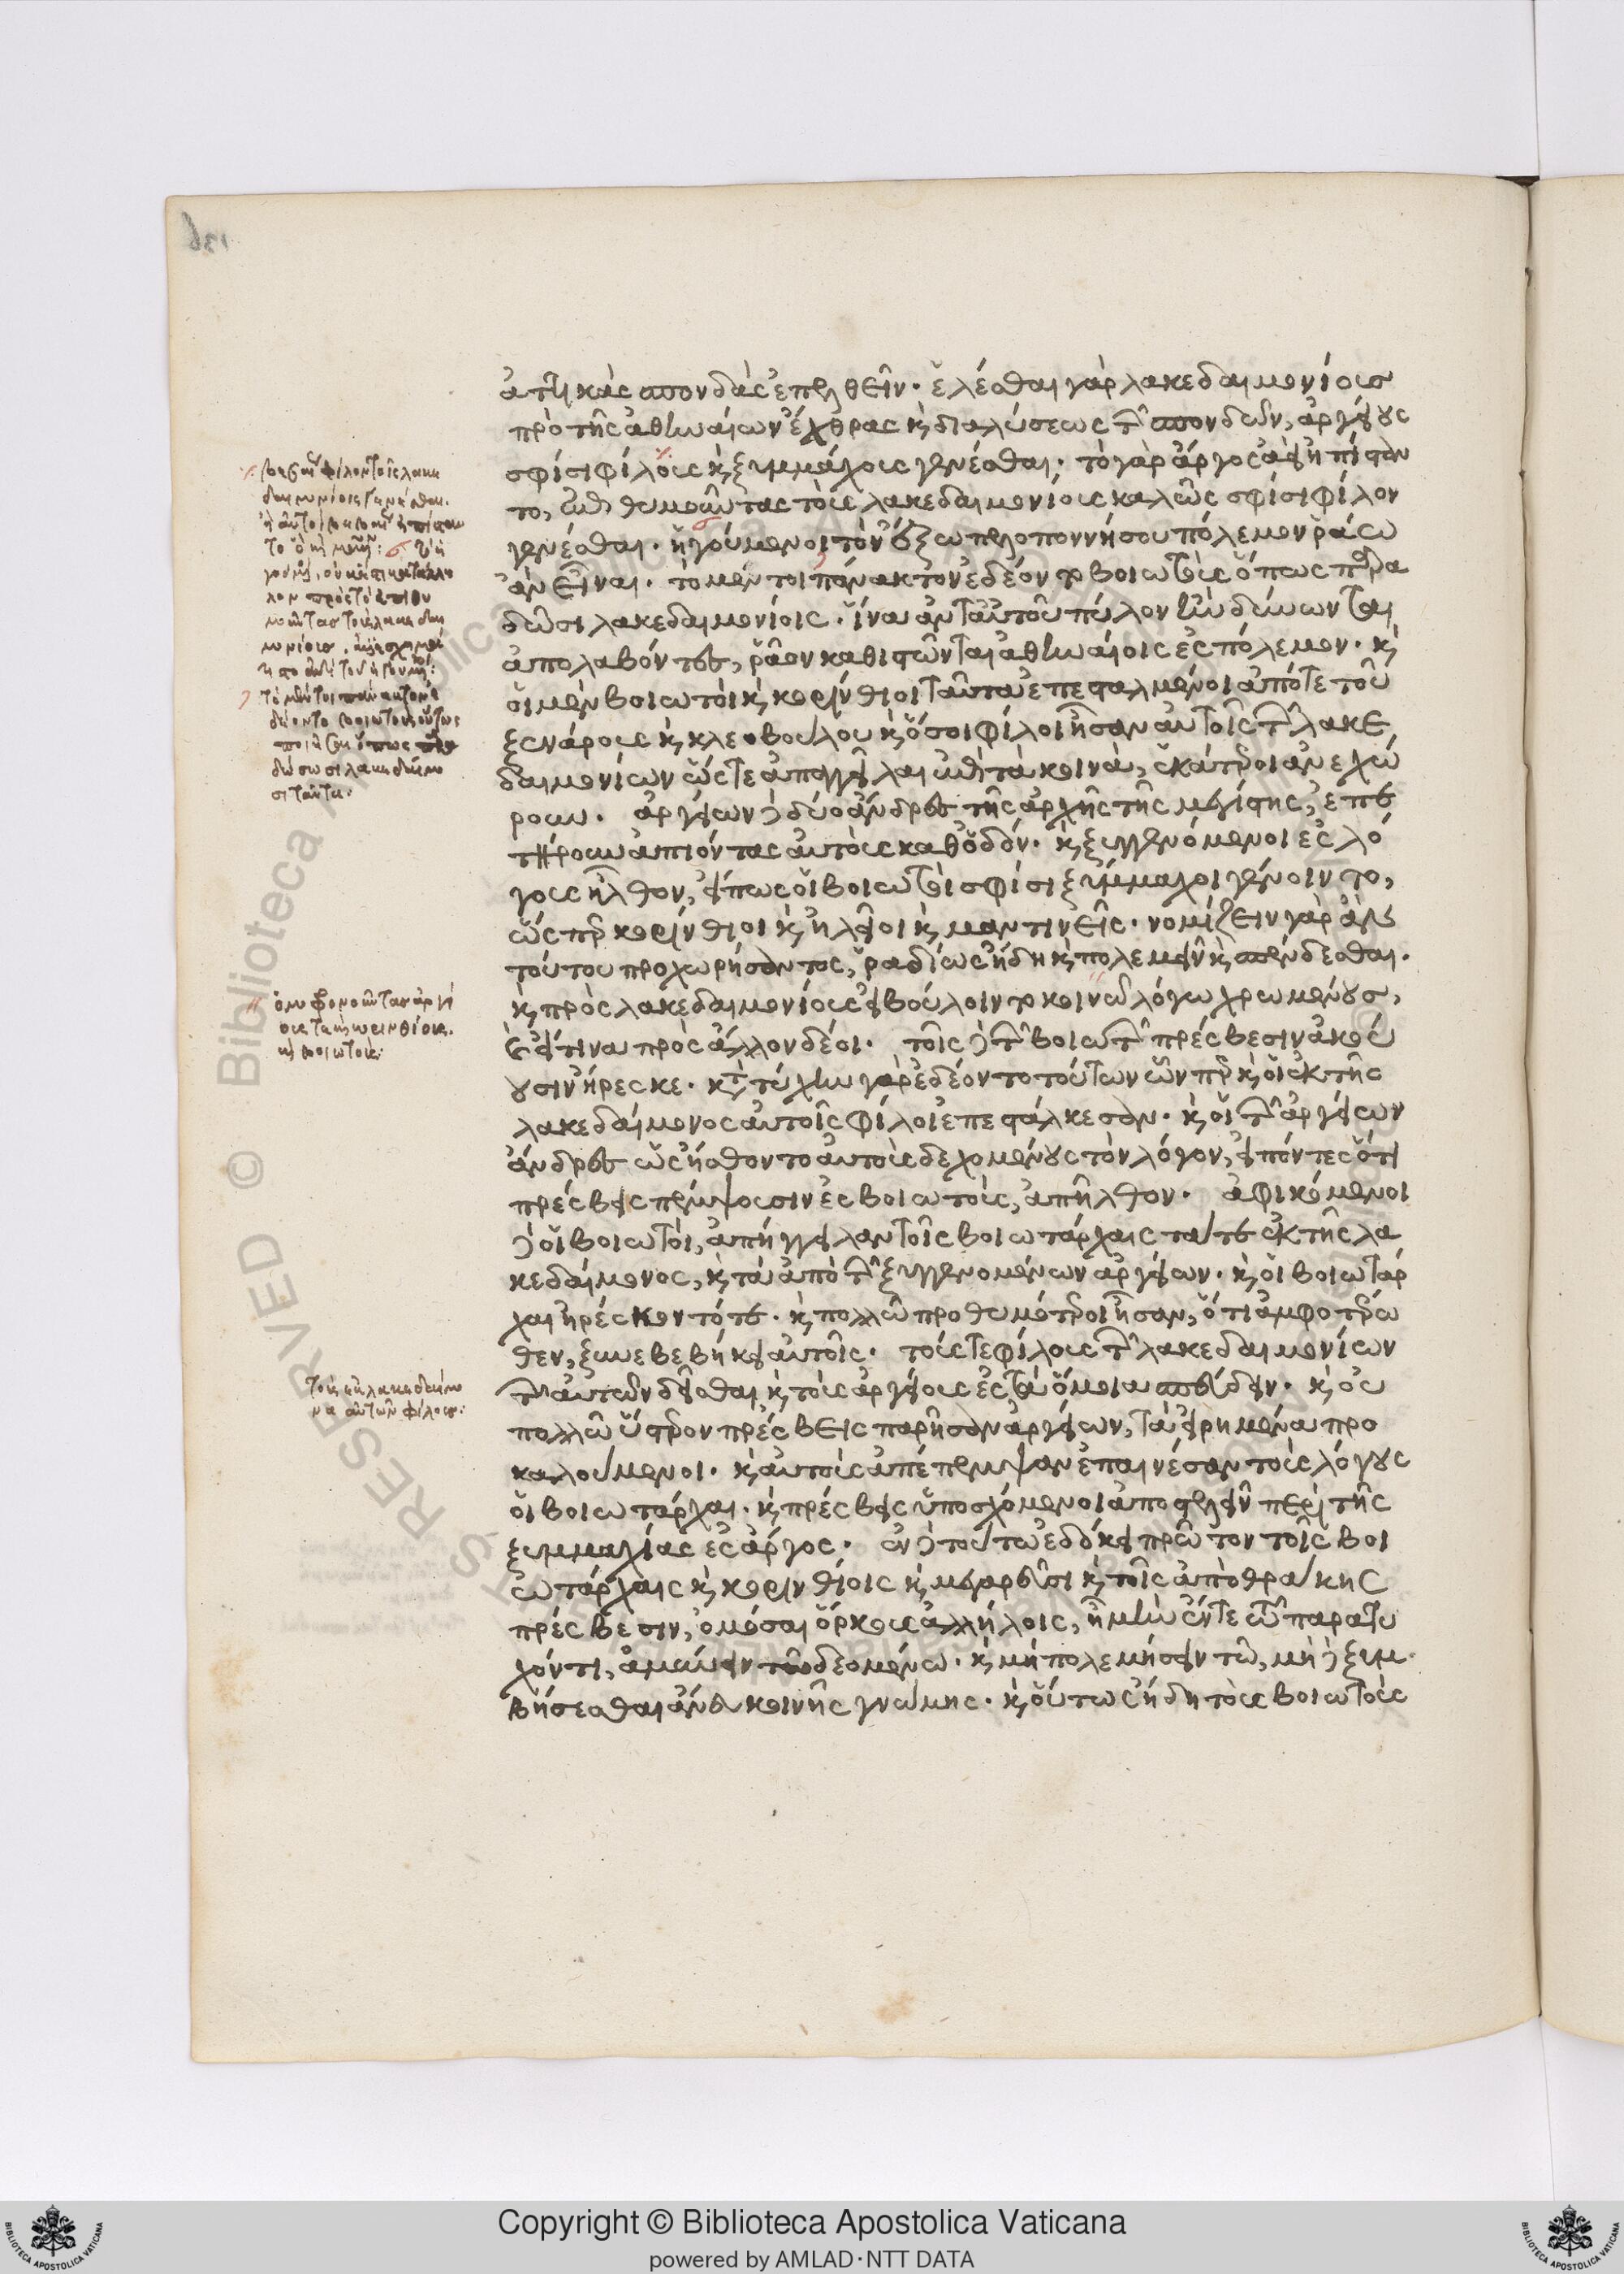 136
ἀττικὰς σπονδὰς ἐπελθεῖν· ἑλέσθαι γὰρ λακεδαιμονίους
πρὸ τῆς ἀθηναίων ἔχθρας κ διαλύσεως τῶν σπονδῶν, ἀργείους
σφίσι φίλους κ ξυμμάχους γενέσθαι· τὸ γὰρ ἄργος ἀεὶ ἠπίσταν
το, ἐπιθυμοῦντας τοὺς λακεδαιμονίους καλῶς σφίσι φίλον
γενέσθαι· ἡγούμενοι τὸν ἔξω πελοποννήσου πόλεμον ῥάω
ἂν εἶναι· τὸ μέντοι πάνακτον ἐδέοντο βοιωτοὺς ὅπως παρα
δῶσι λακεδαιμονίοις· ἵνα ἀντ' αὐτοῦ πύλον ἢν δύνωνται
ἀπολαβόντες, ῥᾶον καθιστῶνται ἀθηναίοις ἐς πόλεμον· κ
οἱ μὲν βοιωτοὶ κ κορίνθιοι ταῦτα ἐπεσταλμένοι ἀπό τε τοῦ
ξενάρους κ κλεοβούλου κ ὅσοι φίλοι ἦσαν αὐτοῖς τῶν λακε
δαιμονίων ὥστε ἀπαγγεῖλαι ἐπὶ τὰ κοινὰ, ἑκάτεροι ἀνεχώ
ρουν· ἀργείων δὲ δύο ἄνδρες τῆς ἀρχῆς τῆς μεγίστης, ἐπε
τήρουν ἀπιόντας αὐτοὺς καθ' ὁδόν· κ ξυγγενόμενοι ἐς λό
γους ἦλθον, εἴπως οἱ βοιωτοὶ σφίσι ξύμμαχοι γένοιντο,
ὥσπερ κορίνθιοι κ ἠλεῖοι κ μαντινεῖς· νομίζειν γὰρ ἂν
τούτου προχωρήσαντος, ῥαδίως ἤδη κ πολεμεῖν κ σπένδεσθαι·
κ πρὸς λακεδαιμονίους εἰ βούλοιντο κοινῶ λόγω χρωμένους,
κ εἴ τινα πρὸς ἄλλον δέοι· τοῖς δὲ τῶν βοιωτῶν πρέσβεσιν ἀκού
ουσιν ἤρεσκε· κατὰ τύχην γὰρ ἐδέοντο τούτων ὧνπερ κ οἱ ἐκ τῆς
λακεδαίμονος αὐτοῖς φίλοι ἐπεστάλκεσαν· κ οἱ τῶν ἀργείων
ἄνδρες ὡς ἤσθοντο αὐτοὺς δεχομένους τὸν λόγον, εἰπόντες ὅτι
πρέσβεις πέμψουσιν ἐς βοιωτοὺς, ἀπῆλθον· ἀφικόμενοι
δὲ οἱ βοιωτοὶ, ἀπήγγειλαν τοῖς βοιωτάρχαις τά τε ἐκ τῆς λα
κεδαίμονος, κ τὰ ἀπὸ τῶν ξυγγενομένων ἀργείων· κ οἱ βοιωτάρ
χαι ἠρέσκοντό τε· κ πολλῶ προθυμότεροι ἦσαν, ὅτι ἀμφοτέρω
θεν, ξυνεβεβήκει αὐτοῖς· τούς τε φίλους τῶν λακεδαιμονίων
τῶν αὐτῶν δεῖσθαι κ τοὺς ἀργείους ἐς τὰ ὅμοια σπεύδειν· κ οὐ
πολλῶ ὕστερον πρέσβεις παρῆσαν ἀργείων, τὰ εἰρημένα προ
καλούμενοι· κ αὐτοὺς ἀπέπεμψαν ἐπαινέσαντες τοὺς λόγους
οἱ βοιωτάρχαι· κ πρέσβεις ὑποσχόμενοι ἀποστελεῖν περὶ τῆς
ξυμμαχίας ἐς ἄργος· ἐν δὲ τούτω ἐδόκει πρῶτον τοῖς βοι
ωτάρχαις κ κορινθίοις κ μεγαρεῦσι κ τοῖς ἀπὸ θράκης
πρέσβεσιν, ὀμόσαι ὅρκους ἀλλήλοις, ἦ μὴν ἔν τε τῶ παρατυ
χόντι, ἀμυνεῖν τῶ δεομένω· κ μὴ πολεμήσειν τω, μὴ δὲ ξυμ
βήσεσθαι ἄνευ κοινῆς γνώμης· κ οὕτως ἤδη τοὺς βοιωτοὺς
φίλον τοῖς λακε
δαιμονίοις γενέσθαι·
τὸ μέντοι πάνακτον ἐ
δέοντο βοιωτοὺς οὕτως
ποιῆσαι ὅπως
δώσωσι λακεδαιμο
ταῦτα·
ὁμοφρονοῦντας ἀργεί
κορινθίοις
κ βοιωτοῖς·
τοὺς ἐν λακεδαίμο
να αὐτῶν φίλους·
Copyright © Biblioteca Apostolica Vaticana
powered by AMLAD·NTT DATA